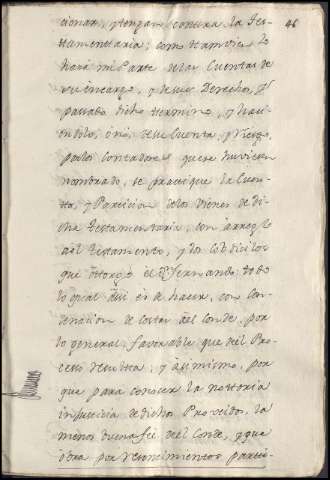 46
cionar, y tengan contra la tes-
tamentaria; como tambien lo
hará mi Parte de las Cuentas de
su encargo, y de sus Derechos, y
passado dicho termino, y hau-
endolos, ó no, de su Cuenta, y Riesgo,
por los Contadores que se huviesen
nombrado, se practique la Cuen-
ta, y Particion de los Vienes de di-
cha testamentaria, con arreglo
al testamento, y los Cobdicilos
que ôttorgó el Dn. Fernando; todo
lo qual assi es de hacer, con Con-
denacion de costas del Conde, por
lo general, favorable que del Pro-
cesso resulta, y assi mismo, por
que para conocer la nottoria
injusticia de dicho Proveido, la
menos buena fee del Conde, y que
obra por resentimientos parti-